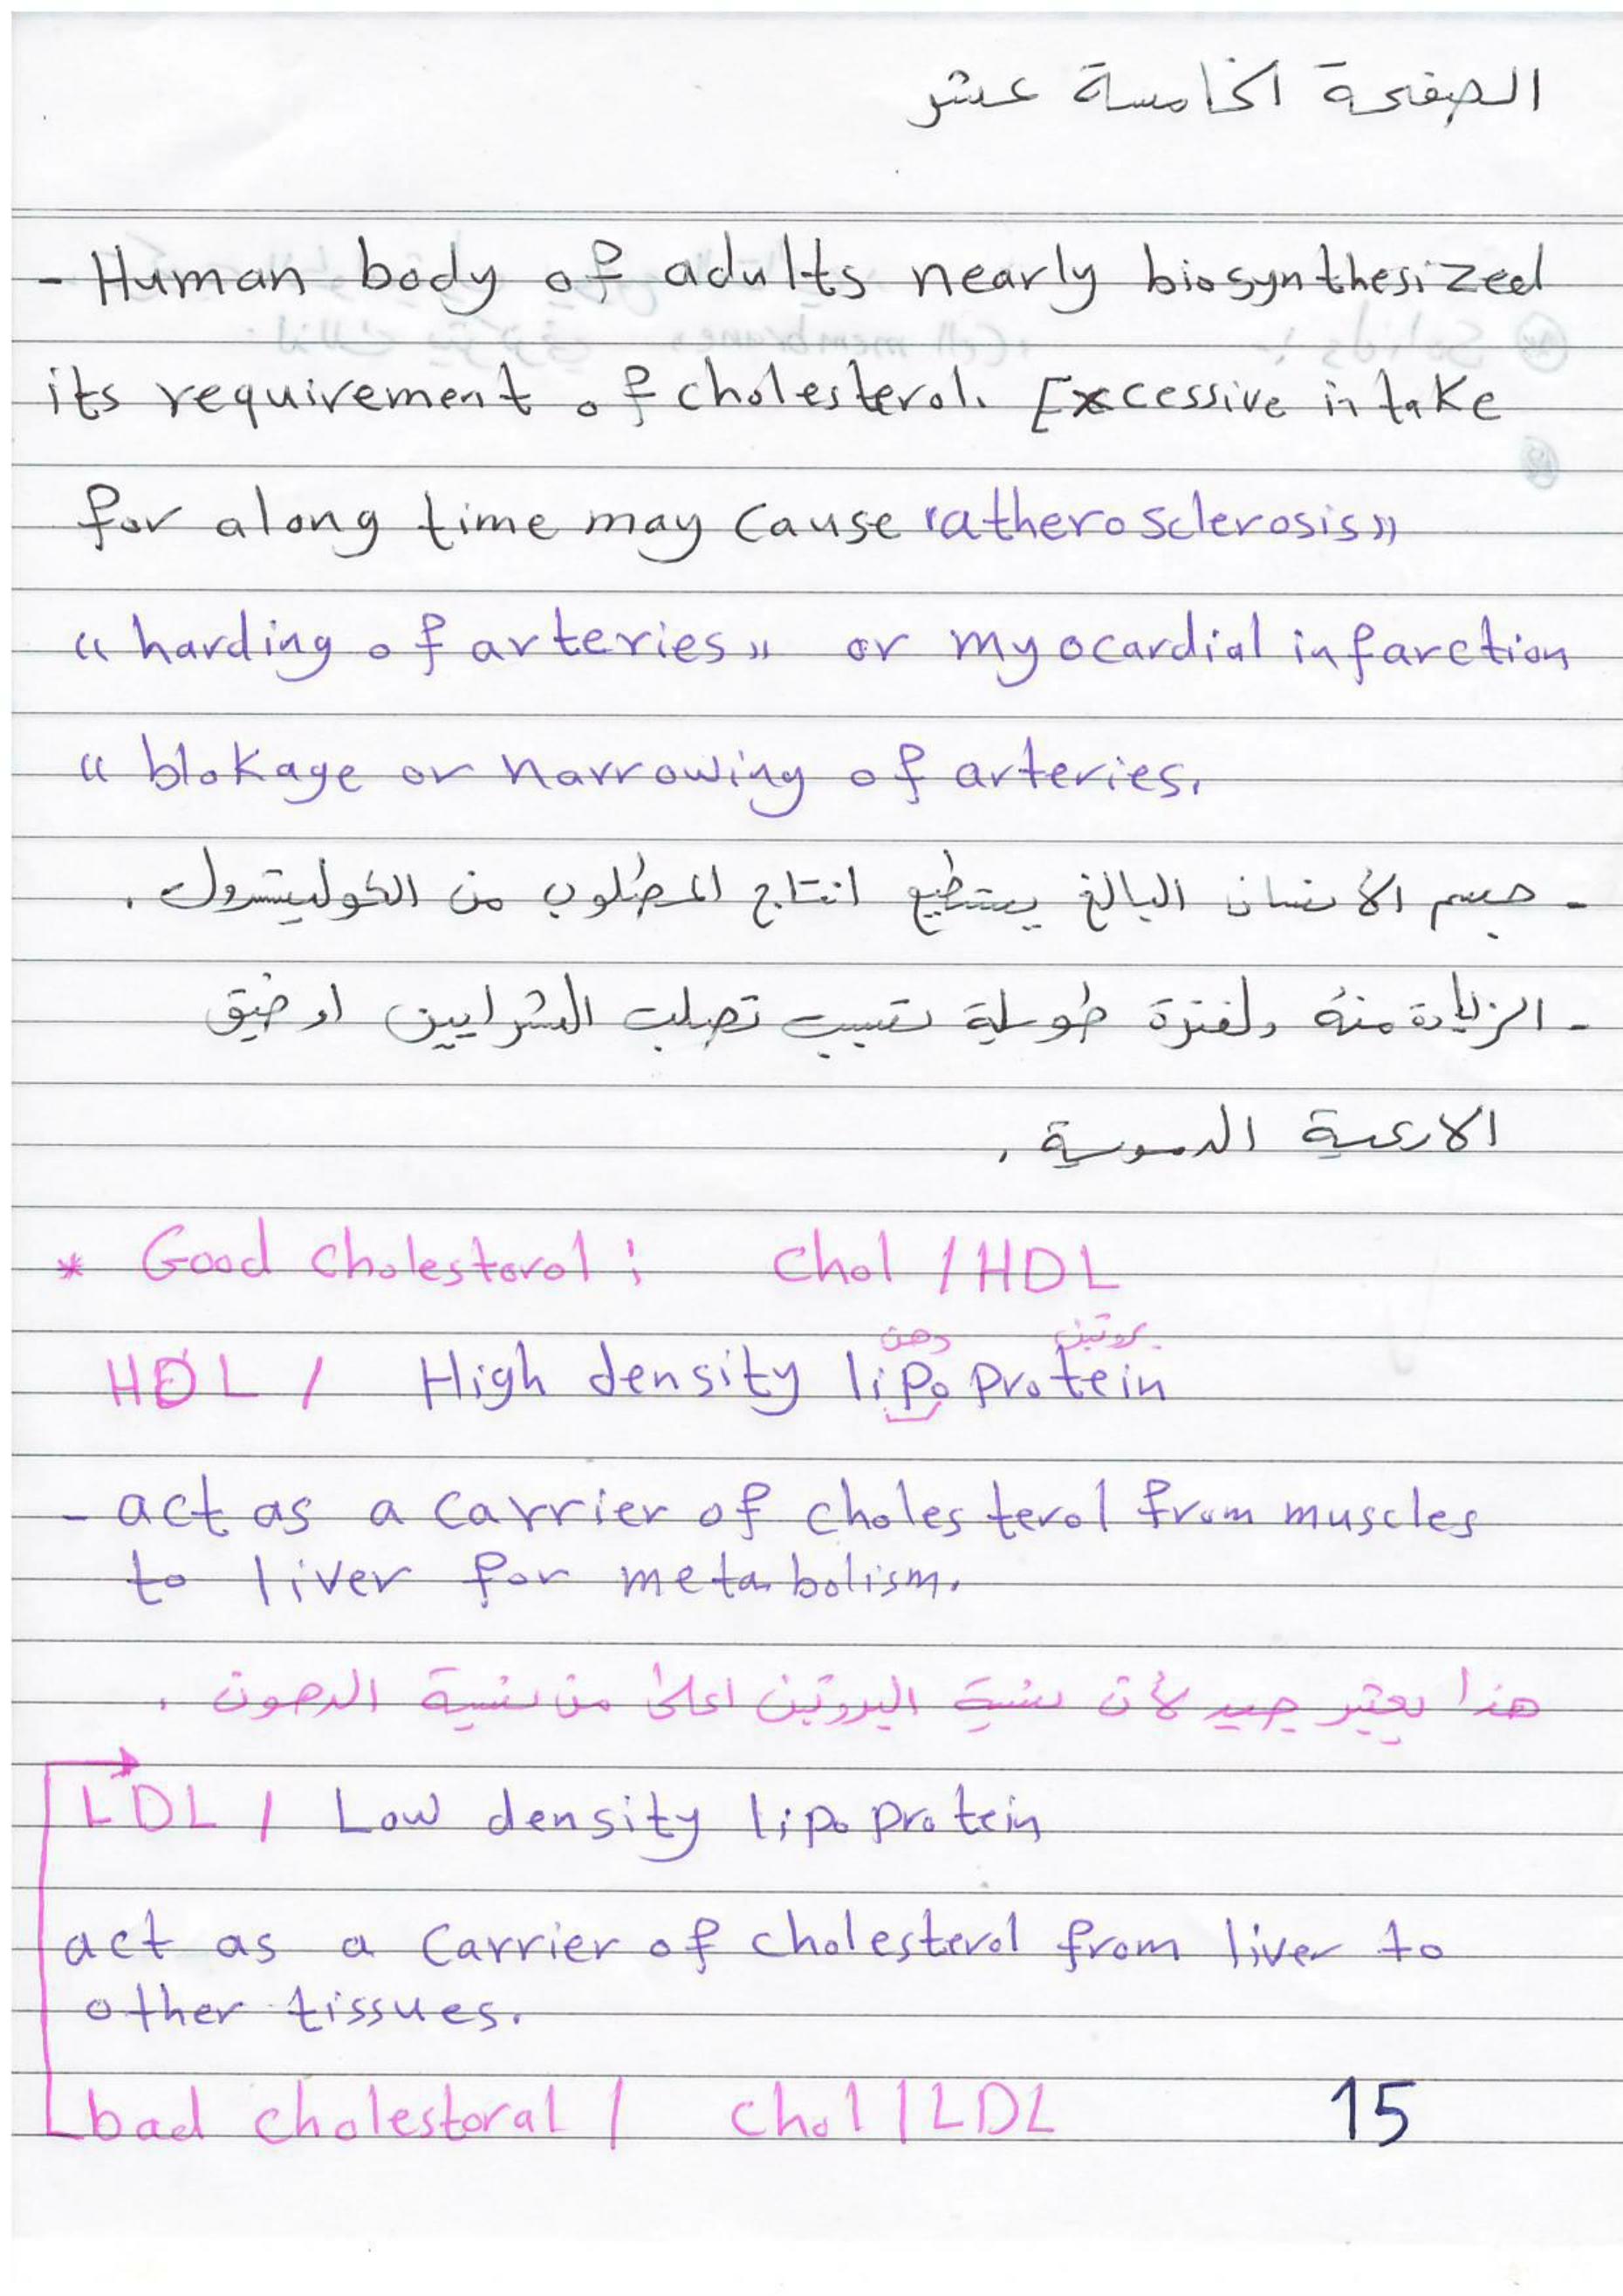 الصفحة الخامسة عشر
- Human body of adults nearly biosynthesized
its requirement of cholesterol. Excessive intake
for along time may cause "atherosclerosis"
"harding of arteries" or myocardial infarction
"blokage or narrowing of arteries.
- جسم الأنسان البالغ يستطيع انتاج المطلوب من الكوليسترول .
- الزيادة منه ولفترة طويلة تسبب تصلب الشرايين او ضيق
الاوعية الدموية .
* Good cholestorol : Chol / HDL
دهن بروتين
HDL / High density lipoprotein
- act as a carrier of cholesterol from muscles
to liver for metabolism.
هذا يعتبر جيد لأن نسبة البروتين اعلى من نسبة الدهون .
LDL / Low density lipoprotein
act as a carrier of cholesterol from liver to
other tissues.
bad cholestoral / chol / LDL
15